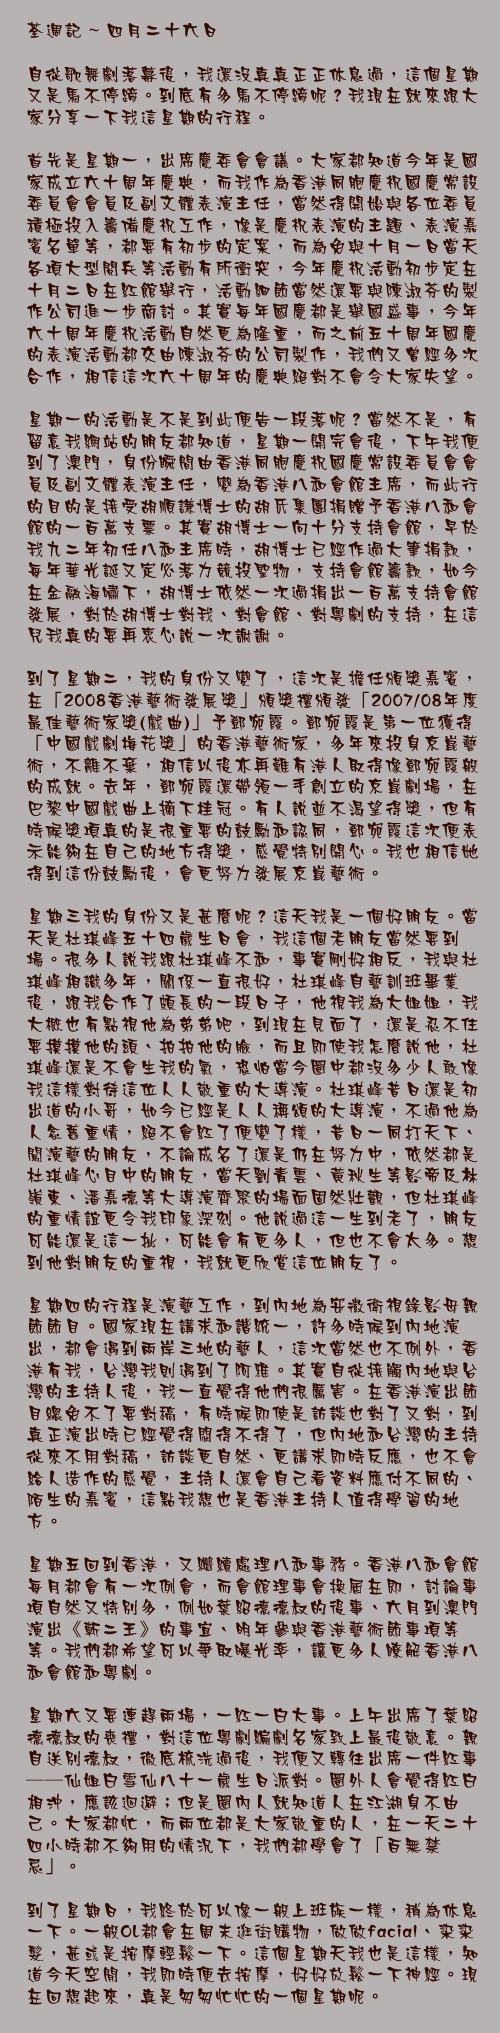 荃週記 ~ 四月二十六日
自從歌舞劇落幕後，我還沒真真正正休息過，這個星期
又是馬不停蹄。到底有多馬不停蹄呢？我現在就來跟大
家分享一下我這星期的行程。
首先是星期一，出席慶委會會議。大家都知道今年是國
家成立六十周年慶典，而我作為香港同胞慶祝國慶常設
委員會會員及副文體表演主任，當然得開始與各位委員
積極投入籌備慶祝工作，像是慶祝表演的主題、表演嘉
賓名單等，都要有初步的定案，而為免與十月一日當天
各項大型閱兵等活動有所衝突，今年慶祝活動初步定在
十月二日在紅館舉行，活動細節當然還要與陳淑芬的製
作公司進一步商討。其實每年國慶都是舉國盛事，今年
六十周年慶祝活動自然更為隆重，而之前五十周年國慶
的表演活動都交由陳淑芬的公司製作，我們又曾經多次
合作，相信這次六十周年的慶典絕對不會令大家失望。
星期一的活動是不是到此便告一段落呢？當然不是，有
留意我網站的朋友都知道，星期一開完會後，下午我便
到了澳門，身份瞬間由香港同胞慶祝國慶常設委員會會
員及副文體表演主任，變為香港八和會館主席，而此行
的目的是接受胡順謙博士的胡氏集團捐贈予香港八和會
館的一百萬支票。其實胡博士一向十分支持會館，早於
我九二年初任八和主席時，胡博士已經作過大筆捐款，
每年華光誕又定必落力競投聖物，支持會館籌款，如今
在金融海嘯下，胡博士依然一次過捐出一百萬支持會館
發展，對於胡博士對我、對會館、對粵劇的支持，在這
兒我真的要再衷心說一次謝謝。
到了星期二，我的身份又變了，這次是擔任頒獎嘉賓，
在「2008香港藝術發展獎」頒獎禮頒發「2007/08年度
最佳藝術家獎(戲曲)」予鄧宛霞。鄧宛霞是第一位獲得
「中國戲劇梅花獎」的香港藝術家，多年來投身京崑藝
術，不離不棄，相信以後亦再難有港人取得像鄧宛霞般
的成就。去年，鄧宛霞還帶領一手創立的京崑劇場，在
巴黎中國戲曲上摘下桂冠。有人說並不渴望得獎，但有
時候獎項真的是很重要的鼓勵和認同，鄧宛霞這次便表
示能夠在自己的地方得獎，感覺特別開心。我也相信她
得到這份鼓勵後，會更努力發展京崑藝術。
星期三我的身份又是甚麼呢？這天我是一個好朋友。當
天是杜琪峰五十四歲生日會，我這個老朋友當然要到
場。很多人說我跟杜琪峰不和，事實剛好相反，我與杜
琪峰相識多年，關係一直很好，杜琪峰自藝訓班畢業
後，跟我合作了頗長的一段日子，他視我為大姐姐，我
大概也有點視他為弟弟吧，到現在見面了，還是忍不住
要摸摸他的頭、拍拍他的臉，而且即使我怎麼說他，杜
琪峰還是不會生我的氣，恐怕當今圈中都沒多少人敢像
我這樣對待這位人人敬重的大導演。杜琪峰昔日還是初
出道的小哥，如今已經是人人稱頌的大導演，不過他為
人念舊重情，絕不會紅了便變了樣，昔日一同打天下、
開演藝的朋友，不論成名了還是仍在努力中，依然都是
杜琪峰心目中的朋友，當天劉青雲、黃秋生等影帝及林
嶺東、潘嘉德等大導演齊聚的場面固然壯觀，但杜琪峰
的重情誼更令我印象深刻。他說過這一生到老了，朋友
可能還是這一批，可能會有更多人，但也不會太多。想
到他對朋友的重視，我就更欣賞這位朋友了。
星期四的行程是演藝工作，到內地為安徽衛視錄影母親
節節目。國家現在講求和諧統一，許多時候到內地演
出，都會遇到兩岸三地的藝人，這次當然也不例外，香
港有我，台灣我則遇到了阿雅。其實自從接觸內地與台
灣的主持人後，我一直覺得他們很厲害。在香港演出節
目總免不了要對稿，有時候即使是訪談也對了又對，到
真正演出時已經覺得悶得不得了，但內地和台灣的主持
從來不用對稿，訪談更自然、更講求即時反應，也不會
給人造作的感覺，主持人還會自己看資料應付不同的、
陌生的嘉賓，這點我想也是香港主持人值得學習的地
方。
星期五回到香港，又繼續處理八和事務。香港八和會館
每月都會有一次例會，而會館理事會換屆在即，討論事
項自然又特別多，例如葉紹德德叔的後事、六月到澳門
演出《斬二王》的事宜、明年參與香港藝術節事項等
等。我們都希望可以爭取曝光率，讓更多人瞭解香港八
和會館和粵劇。
星期六又要連趕兩場，一紅一白大事。上午出席了葉紹
德德叔的喪禮，對這位粵劇編劇名家致上最後敬意。親
自送別德叔，徹底梳洗過後，我便又轉往出席一件紅事
——仙姐白雪仙八十一歲生日派對。圈外人會覺得紅白
相沖，應該迴避；但是圈內人就知道人在江湖身不由
己。大家都忙，而兩位都是大家敬重的人，在一天二十
四小時都不夠用的情況下，我們都學會了「百無禁
忌」。
到了星期日，我終於可以像一般上班族一樣，稍為休息
一下。一般OL都會在周末逛街購物，做做facial、染染
髮，甚或是按摩輕鬆一下。這個星期天我也是這樣，知
道今天空閒，我即時便去按摩，好好放鬆一下神經。現
在回想起來，真是匆匆忙忙的一個星期呢。